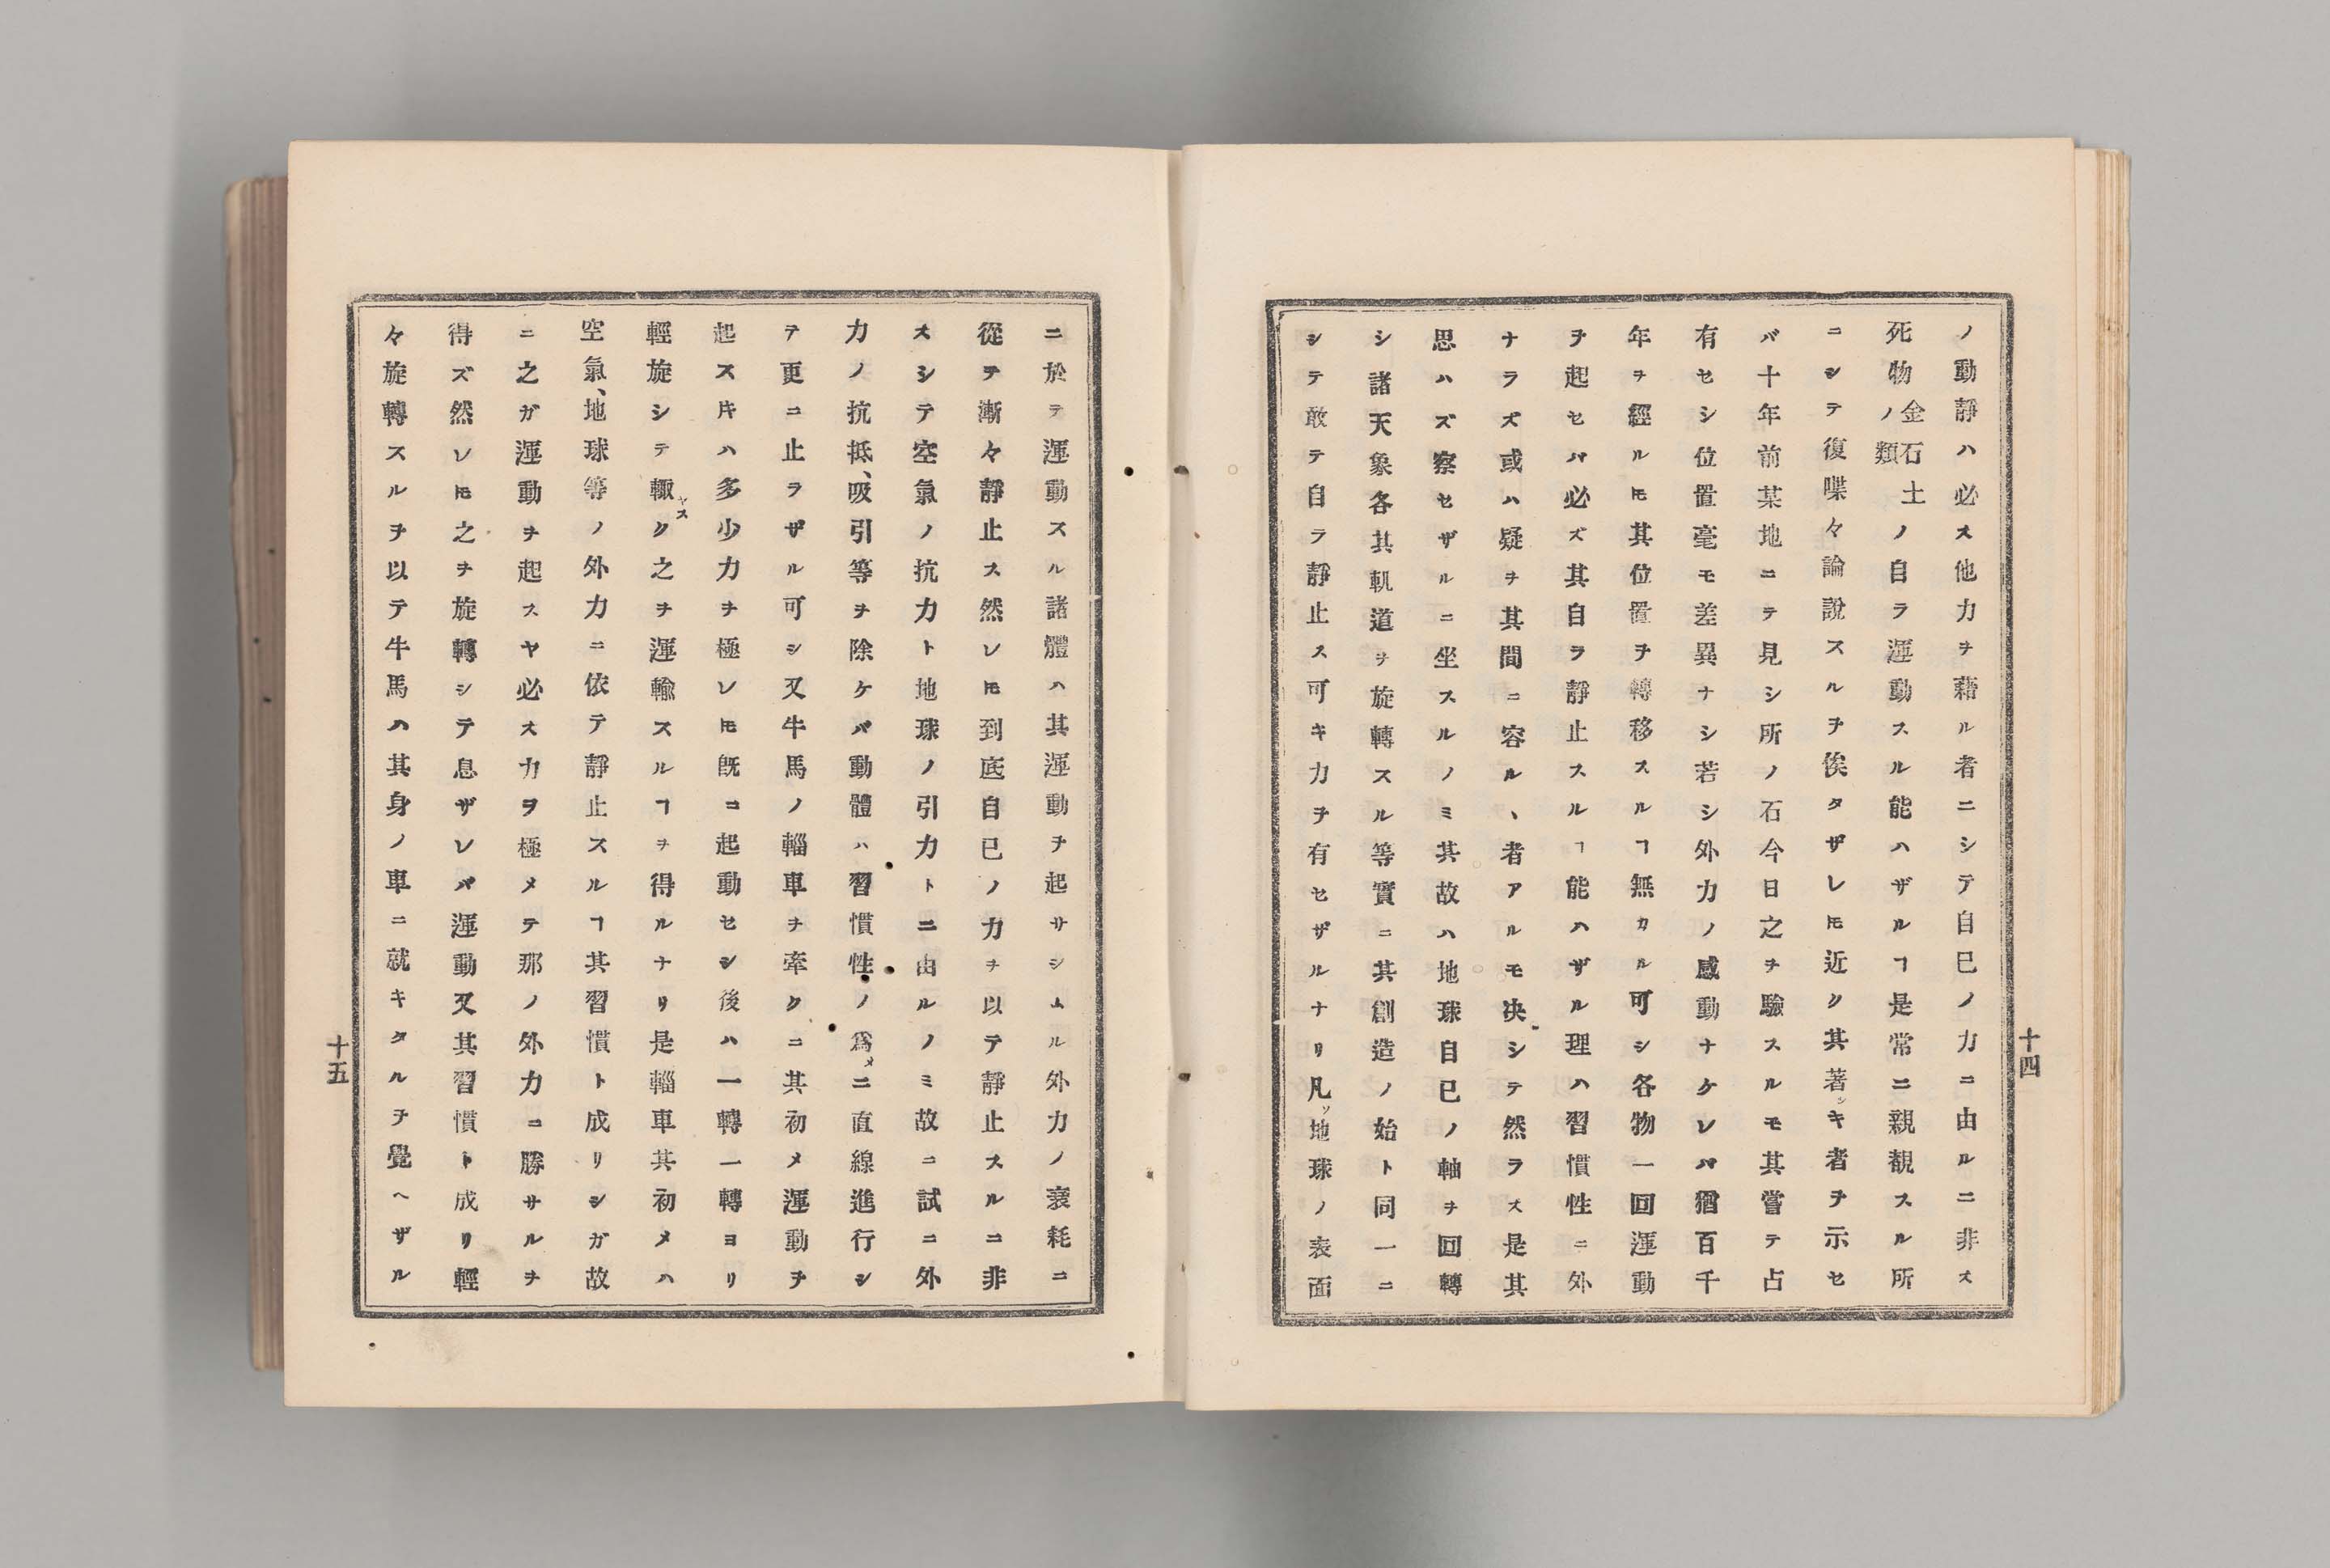 ノ動靜ハ必ス他力ヲ藉ル者ニシテ自已ノ力ニ由ルニ非ス
死物金石土ノ類ノ自ラ運動スル能ハザルヿ是常ニ親覩スル所
ニシテ復喋々論說スルヲ俟タザレ𪜈近ク其著シキ者ヲ示セ
バ十年前某地ニテ見シ所ノ石今日之ヲ驗スルモ其嘗テ占
有セシ位置毫モ差異ナシ若シ外力ノ感動ナケレバ猶百千
年ヲ經ル𪜈其位置ヲ轉移スルヿ無カル可シ各物一回運動
ヲ起セバ必ズ其自ラ靜止スルヿ能ハザル理ハ習慣性ニ外
ナラズ或ハ疑ヲ其間ニ容ルヽ者アルモ决シテ然ラズ是其
思ハズ察セザルニ坐スルノミ其故ハ地球自已ノ軸ヲ回轉
シ諸天象各其軌道ヲ旋轉スル等實ニ其創造ノ始ト同一ニ
シテ敢テ自ラ靜止ス可キ力ヲ有セザルナリ凡ソ地球ノ表面
十四
ニ於テ運動スル諸體ハ其運動ヲ起サシムル外力ノ衰耗ニ
從テ漸々靜止ス然レ𪜈到底自已ノ力ヲ以テ靜止スルニ非
スシテ空氣ノ抗力ト地球ノ引力トニ由ルノミ故ニ試ニ外
力ノ抗抵、吸引等ヲ除ケバ動體ハ習慣性ノ爲メニ直線進行シ
テ更ニ止ラザル可シ又牛馬ノ輜車ヲ牽クニ其初メ運動ヲ
起ス片ハ多少力ヲ極レ𪜈既ニ起動セシ後ハ一轉一轉ヨリ
輕旋シテ輙ヤスク之ヲ運輸スルヿヲ得ルナリ是輜車其初メハ
空氣、地球等ノ外力ニ依テ靜止スルヿ其習慣ト成リシガ故
ニ之ガ運動ヲ起スヤ必ス力ヲ極メテ那ノ外力ニ勝サルヲ
得ズ然レ𪜈之ヲ旋轉シテ息ザレバ運動又其習慣ト成リ輕
々旋轉スルヲ以テ牛馬ハ其身ノ車ニ就キタルヲ覺ヘザル
十五